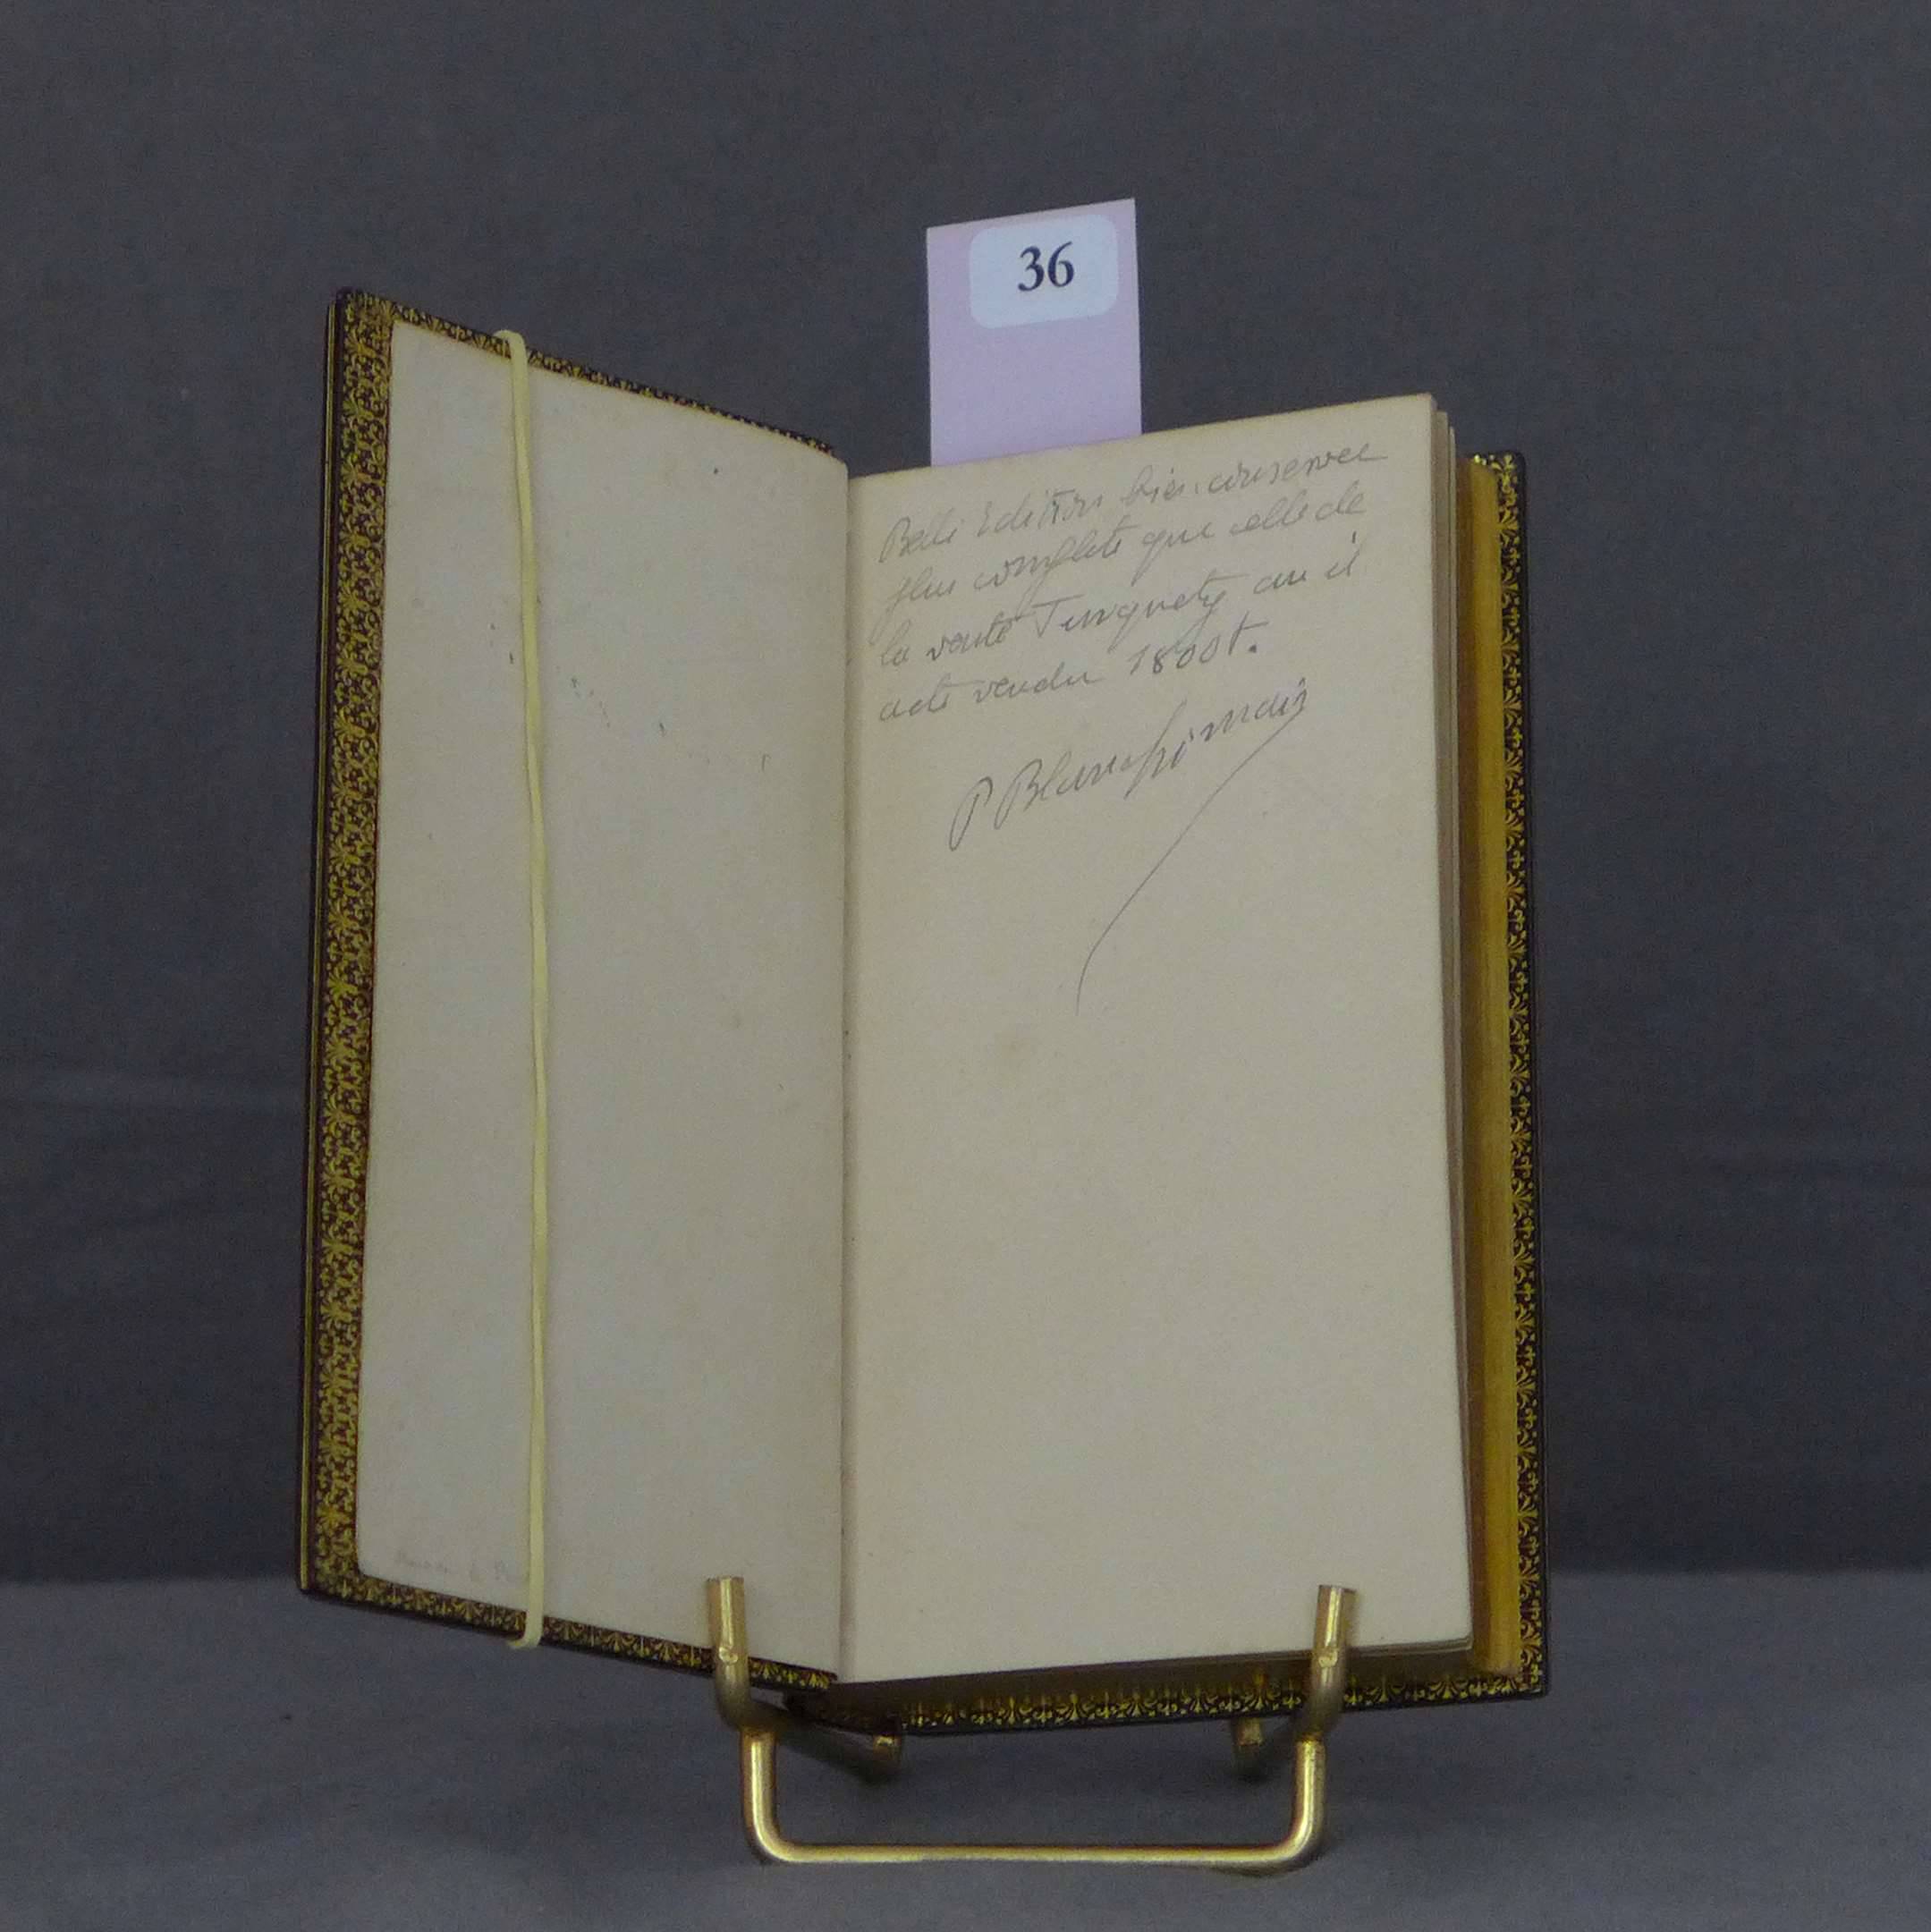 36
Belle Edition bien conservee
plus complete que celle de
la vente Turquety ou il
a ete vendu 1800f.
P Blanchemain